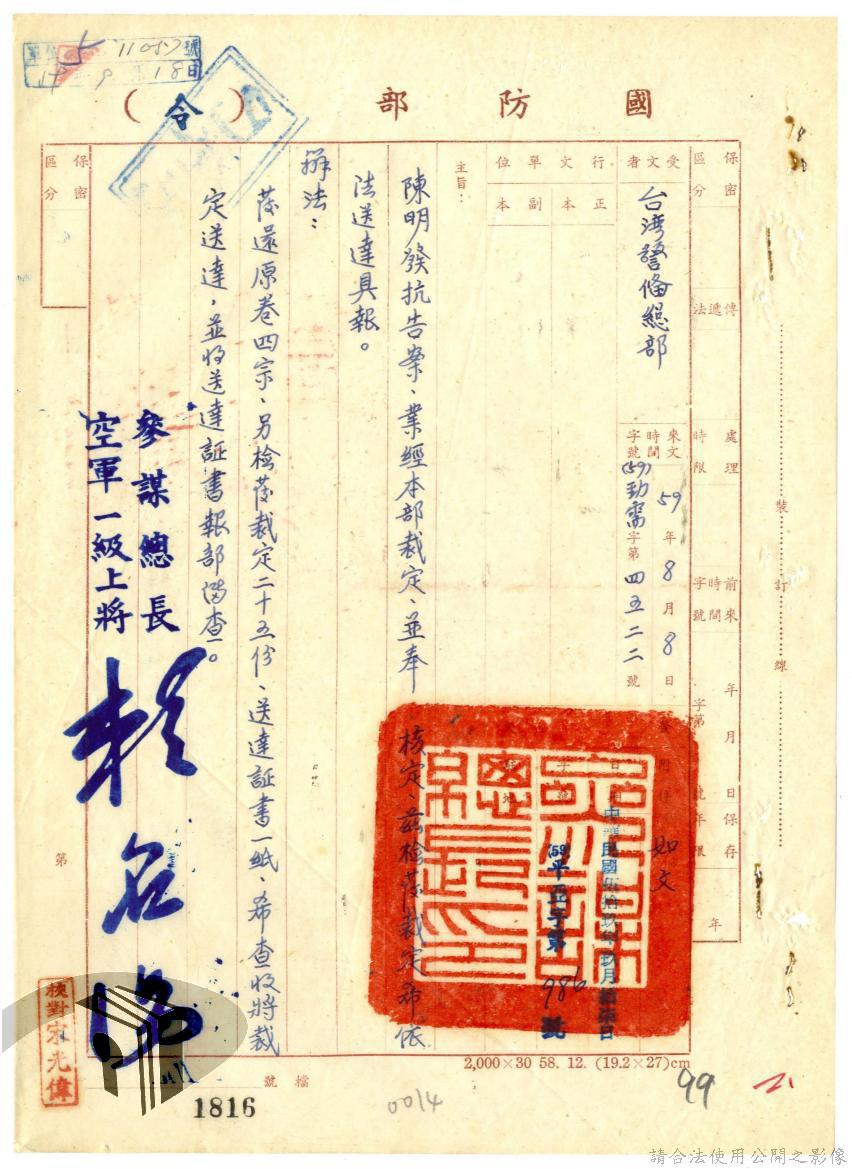 國防部（令）
保密區分
傳遞法
處理時限
前來時間字號
年月日
字第號
保存年限
年
受文者
台灣警備總部
來文時間字號
59年8月8日
(59)勁需字第四五二二號
附件
如文
行文單位
正本
副本
中華民國伍拾玖年玖月拾柒日
(59)平亞字第986號
主旨：
陳明發抗告案、業經本部裁定、並奉 核定、茲檢發裁定希依
法送達具報。
辦法：
發還原卷四宗、另檢發裁定二十五份、送達証書一紙、希查收將裁
定送達，並將送達証書報部備查。
參謀總長
空軍一級上將
賴名湯
保密區分
第
核對宋光偉
裝訂線
5 11057號
59 9 18日
檔號
1816
0014
2,000×30 58. 12. (19.2×27)cm
99
請合法使用公開之影像